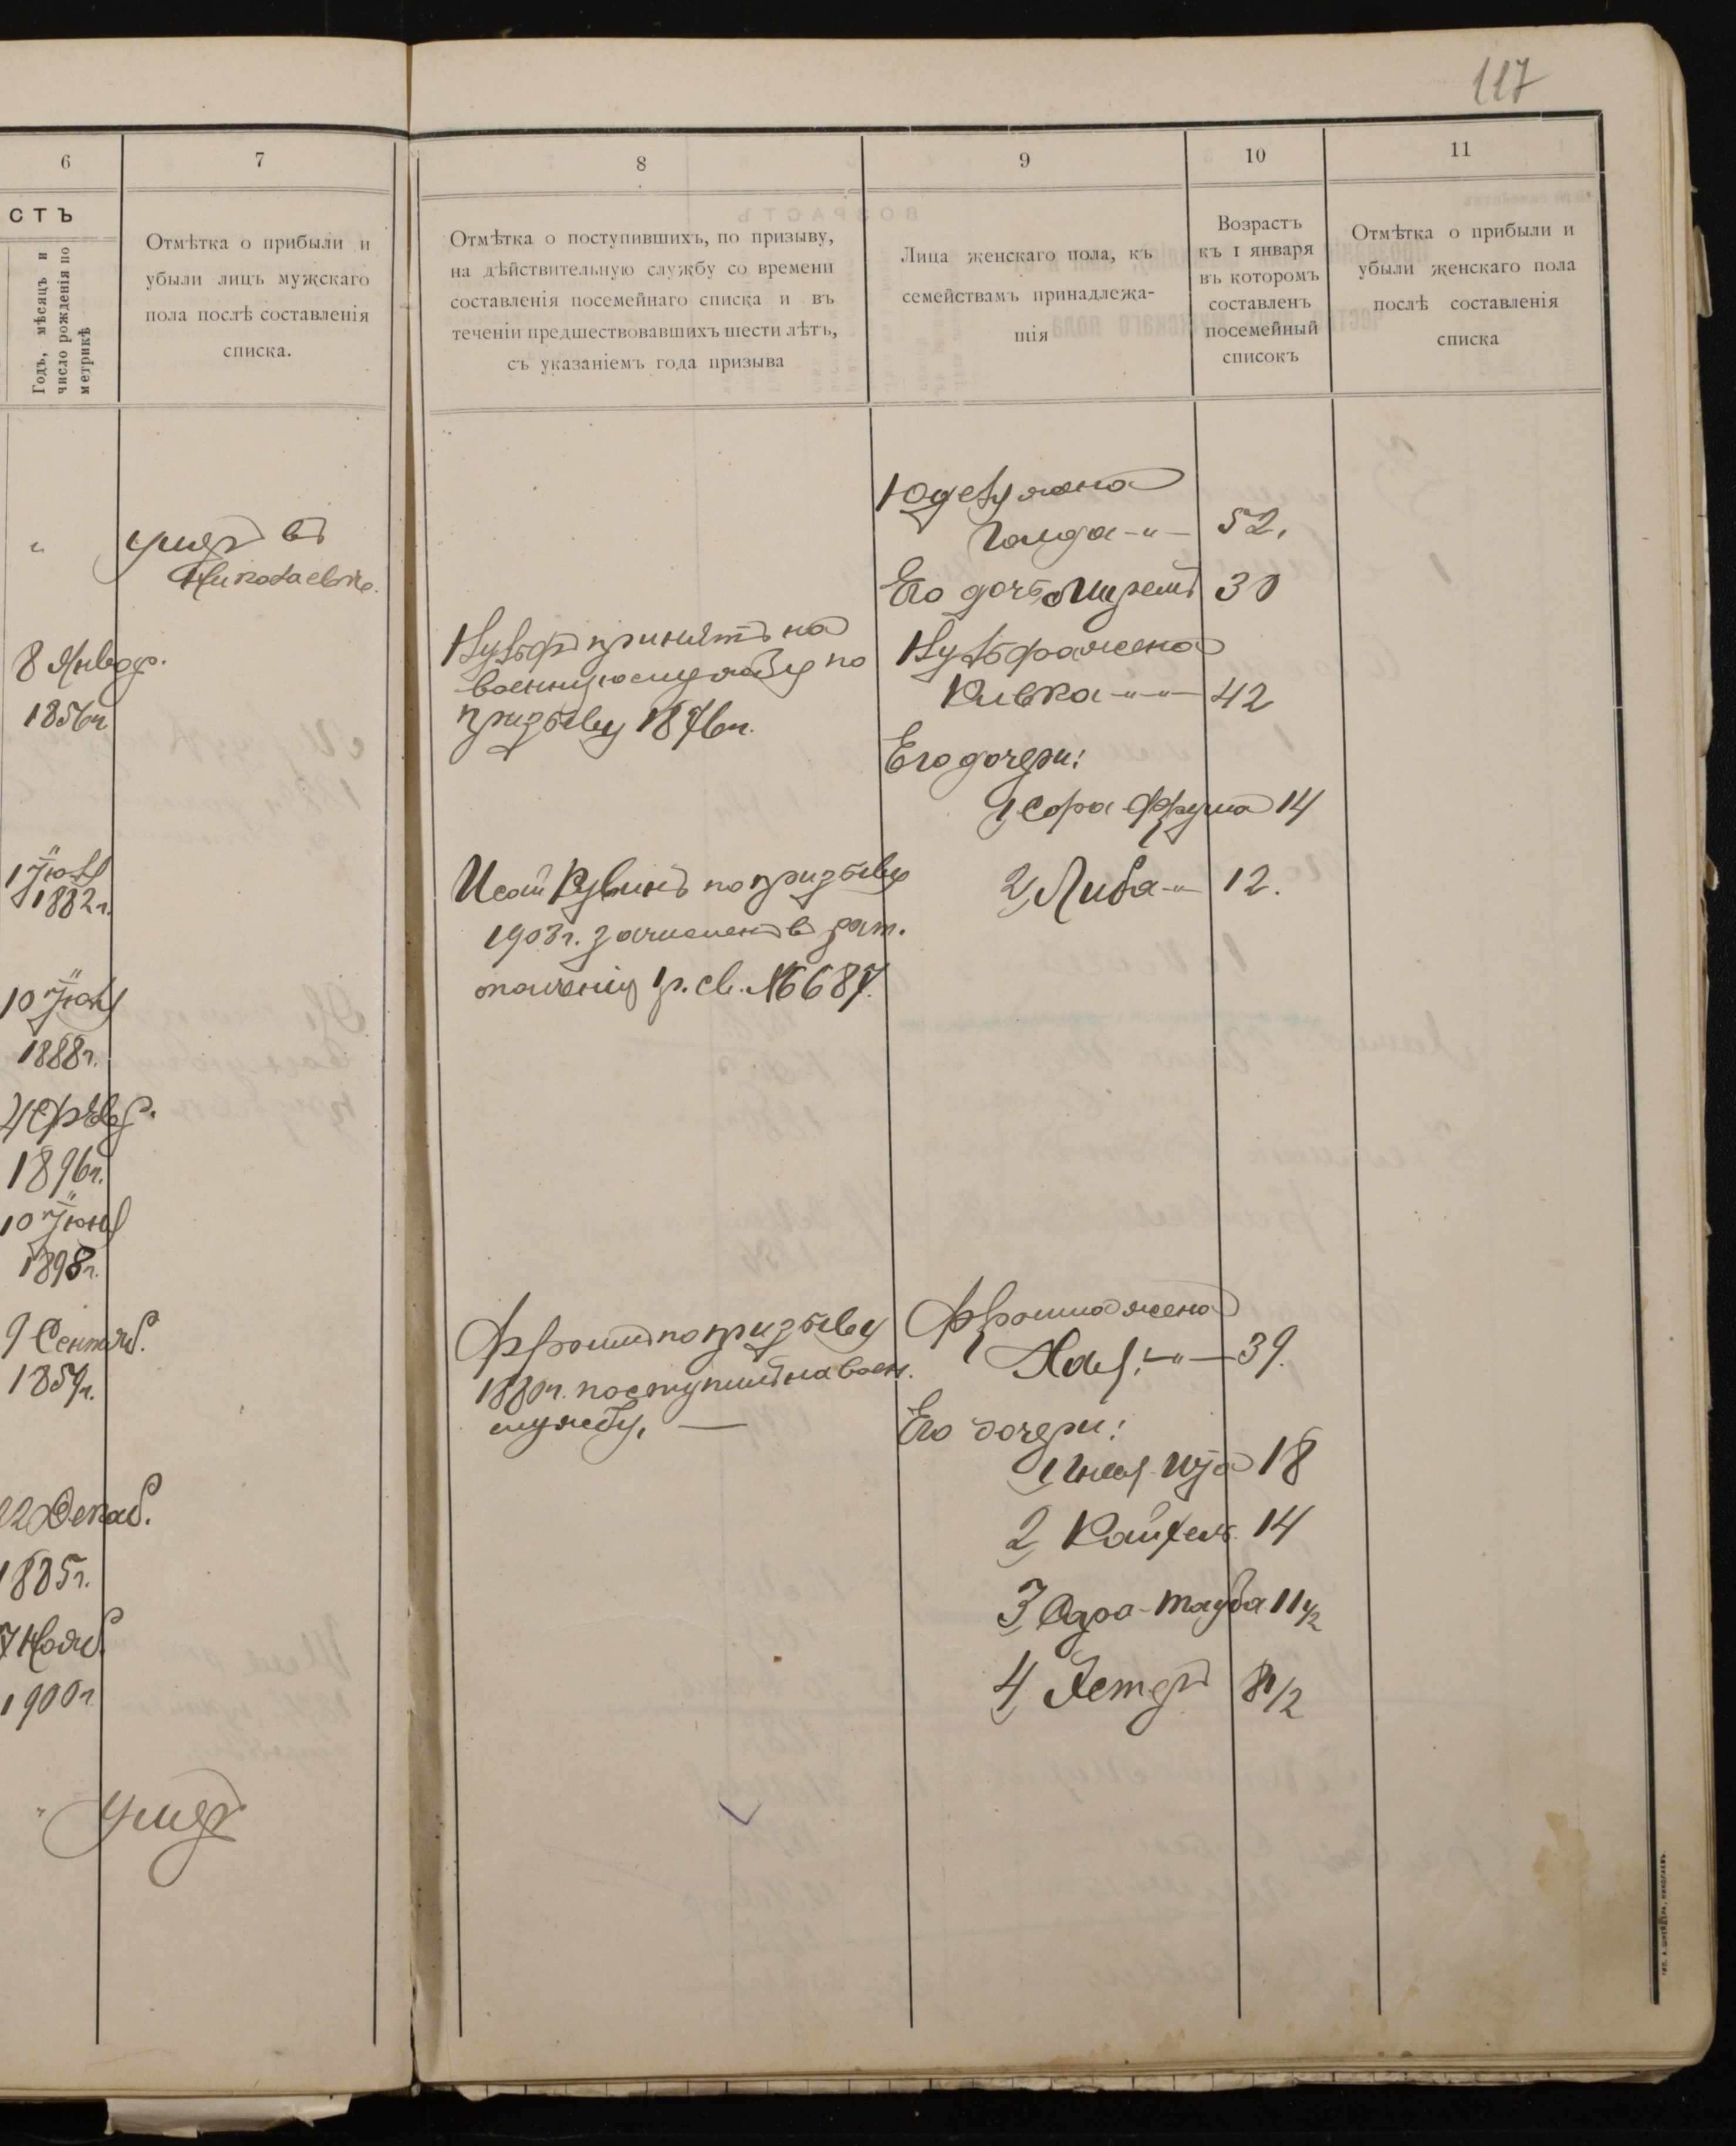 117
6
7
8
9
10
11
СТЪ
Годъ, мѣсяцъ и
число рожденія по
метрикѣ
Отмѣтка о прибыли и
убыли лицъ мужскаго
пола послѣ составленія
списка.
Отмѣтка о поступившихъ, по призыву,
на дѣйствительную службу со времени
составленія посемейнаго списка и въ
теченіи предшествовавшихъ шести лѣтъ,
съ указаніемъ года призыва
Лица женскаго пола, къ
семействамъ принадлежа-
щія
Возрастъ
къ 1 января
въ которомъ
составленъ
посемейный
списокъ
Отмѣтка о прибыли и
убыли женскаго пола
послѣ составленія
списка
"
умеръ въ
Николаевѣ.
8 Январ.
1856г
1 Іюля
1882г.
10 Іюля
1888г.
4 Февр.
1896г.
10 Іюня
1898г.
9 Сентяб.
1859г.
22 Декаб.
1885г.
7 Нояб.
1900г
"
умеръ
принятъ на
военную службу по
призыву 1876г.
по призыву
1903г. зачисленъ въ рат.
ополченія 1 р. св. № 6687.
Фроимъ по призыву
1880г. поступилъ на воен.
службу. —
жена
Голда -"- 52.
Его дочь 30
жена
Ривка -"-"- 42
Его дочери:
1, Сора Фрума 14
2, Либа -"- 12.
Фроима жена
Хая -"- 39.
Его дочери:
1, 18
2, 14
3, тауба 11 1/2
4, Эстеръ 8 1/2